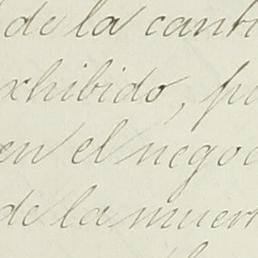 de la canti
xhibido, pa
en el negoc
de la muert